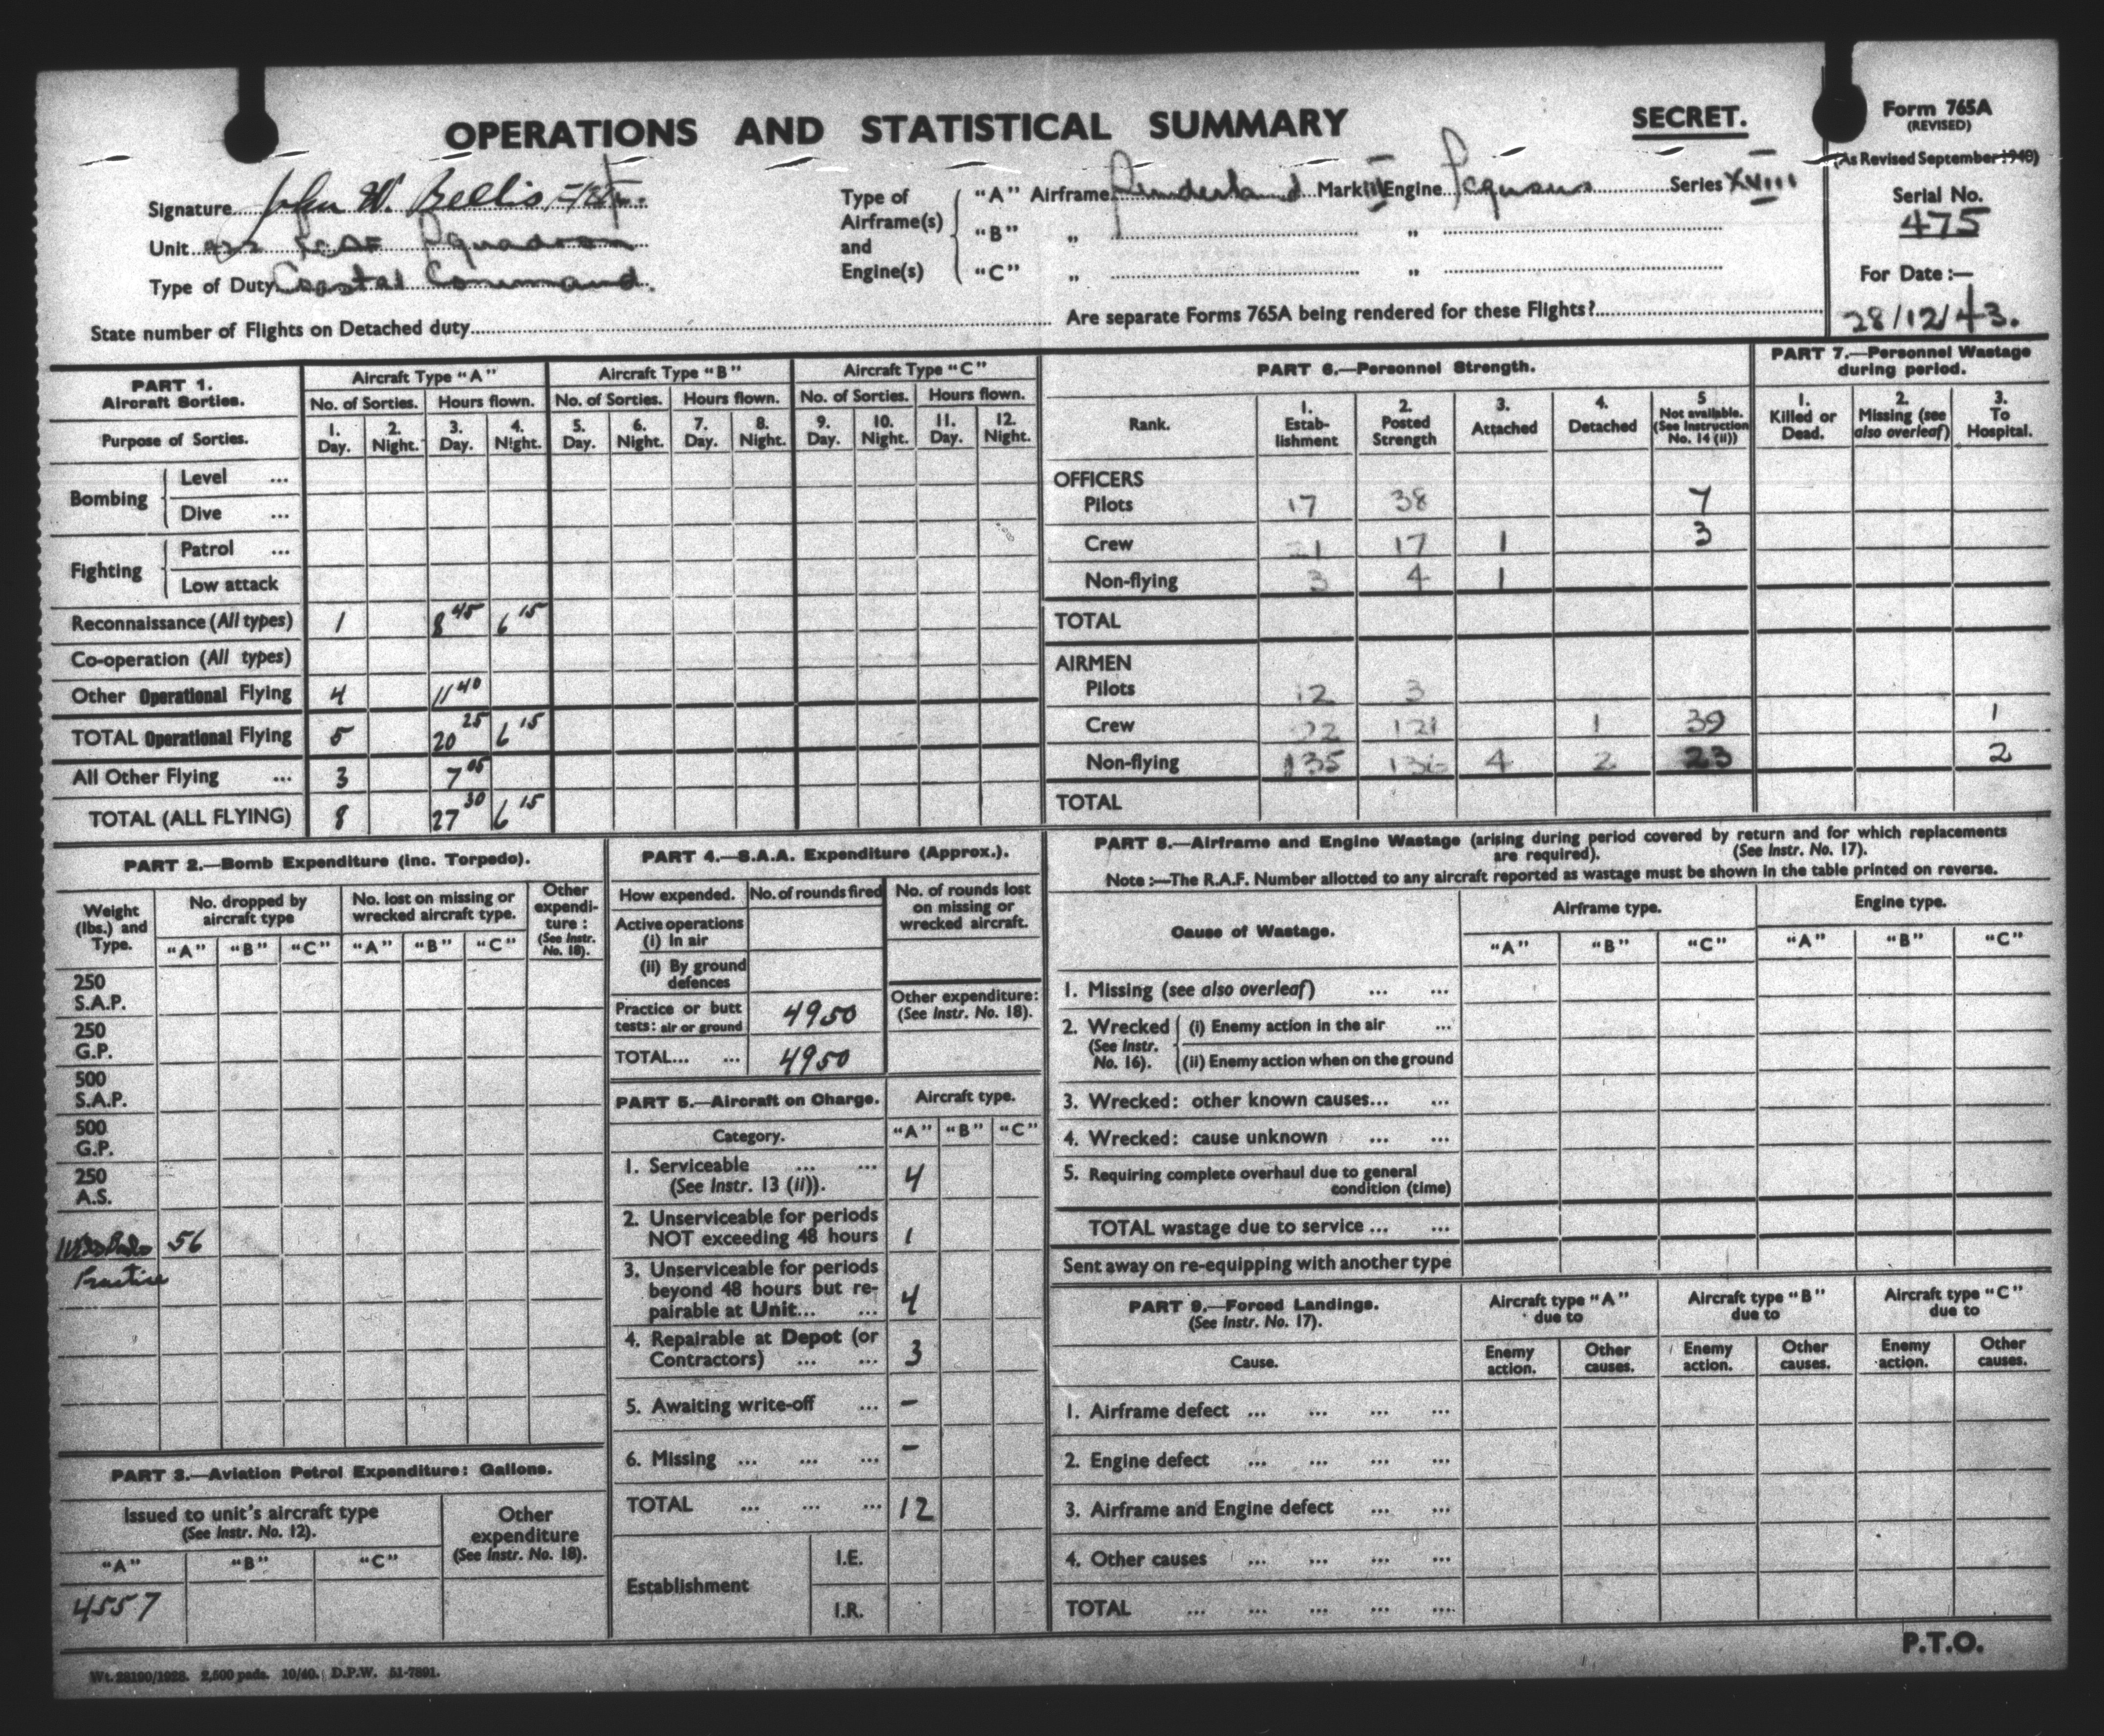 OPERATIONS AND STATISTICAL SUMMARY
SECRET.
Form 765A
(REVISED)
(As Revised September 1940)
Signature John W. Bellis
Unit 422 RCAF Squadron
Type of Duty Coastal Command.
State number of Flights on Detached duty
Type of Airframe(s) and Engine(s)
"A" Airframe Sunderland Mark III Engine Pegasus Series XVIII
"B" „ „
"C" „ „
Are separate Forms 765A being rendered for these Flights?
Serial No.
475
For Date :—
28/12/43.
PART 1.
Aircraft Sorties.
Aircraft Type "A" Aircraft Type "B" Aircraft Type "C"
No. of Sorties. Hours flown. No. of Sorties. Hours flown. No. of Sorties. Hours flown.
Purpose of Sorties.
1. Day. 2. Night. 3. Day. 4. Night. 5. Day. 6. Night. 7. Day. 8. Night. 9. Day. 10. Night. 11. Day. 12. Night.
Bombing
Level ...
Dive ...
Fighting
Patrol ...
Low attack
Reconnaissance (All types) 1 8 45 6 15
Co-operation (All types)
Other Operational Flying 4 11 40
TOTAL Operational Flying 5 20 25 6 15
All Other Flying ... 3 7 05
TOTAL (ALL FLYING) 8 27 30 6 15
PART 6.—Personnel Strength.
Rank.
1. Estab-lishment
2. Posted Strength
3. Attached
4. Detached
5 Not available. (See Instruction No. 14 (ii))
PART 7.—Personnel Wastage during period.
1. Killed or Dead.
2. Missing (see also overleaf)
3. To Hospital.
OFFICERS
Pilots 17 38 7
Crew 1 17 1 3
Non-flying 3 4 1
TOTAL
AIRMEN
Pilots 12 3
Crew 121 1 39 1
Non-flying 135 4 2 23 2
TOTAL
PART 2.—Bomb Expenditure (Inc. Torpedo).
Weight (lbs.) and Type.
No. dropped by aircraft type
No. lost on missing or wrecked aircraft type.
Other expendi-ture : (See Instr. No. 18).
"A" "B" "C" "A" "B" "C"
250 S.A.P.
250 G.P.
500 S.A.P.
500 G.P.
250 A.S.
56
Practice
PART 3.—Aviation Petrol Expenditure: Gallons.
Issued to unit's aircraft type
(See Instr. No. 12).
Other expenditure
(See Instr. No. 18).
"A" "B" "C"
4557
PART 4.—S.A.A. Expenditure (Approx.).
How expended. No. of rounds fired
No. of rounds lost on missing or wrecked aircraft.
Active operations
(i) In air
(ii) By ground defences
Practice or butt tests: air or ground 4950
Other expenditure: (See Instr. No. 18).
TOTAL... ... 4950
PART 5.—Aircraft on Charge. Aircraft type.
Category. "A" "B" "C"
1. Serviceable ... ...
(See Instr. 13 (ii)). 4
2. Unserviceable for periods
NOT exceeding 48 hours 1
3. Unserviceable for periods
beyond 48 hours but re-
pairable at Unit... ... 4
4. Repairable at Depot (or
Contractors) ... ... 3
5. Awaiting write-off ... –
6. Missing ... ... ... –
TOTAL ... ... ... 12
Establishment
I.E.
I.R.
PART 8.—Airframe and Engine Wastage (arising during period covered by return and for which replacements are required). (See Instr. No. 17).
Note :—The R.A.F. Number allotted to any aircraft reported as wastage must be shown in the table printed on reverse.
Cause of Wastage.
Airframe type. Engine type.
"A" "B" "C" "A" "B" "C"
1. Missing (see also overleaf) ... ...
2. Wrecked (See Instr. No. 16).
(i) Enemy action in the air ...
(ii) Enemy action when on the ground
3. Wrecked: other known causes... ...
4. Wrecked: cause unknown ... ...
5. Requiring complete overhaul due to general
condition (time)
TOTAL wastage due to service ... ...
Sent away on re-equipping with another type
PART 9.—Forced Landings.
(See Instr. No. 17).
Aircraft type "A" due to
Aircraft type "B" due to
Aircraft type "C" due to
Cause.
Enemy action. Other causes. Enemy action. Other causes. Enemy action. Other causes.
1. Airframe defect ... ... ... ...
2. Engine defect ... ... ... ...
3. Airframe and Engine defect ... ...
4. Other causes ... ... ... ...
TOTAL ... ... ... ... ....
P.T.O.
Wt. 28190/1928. 2,500 pads. 10/40. D.P.W. 51-7891.